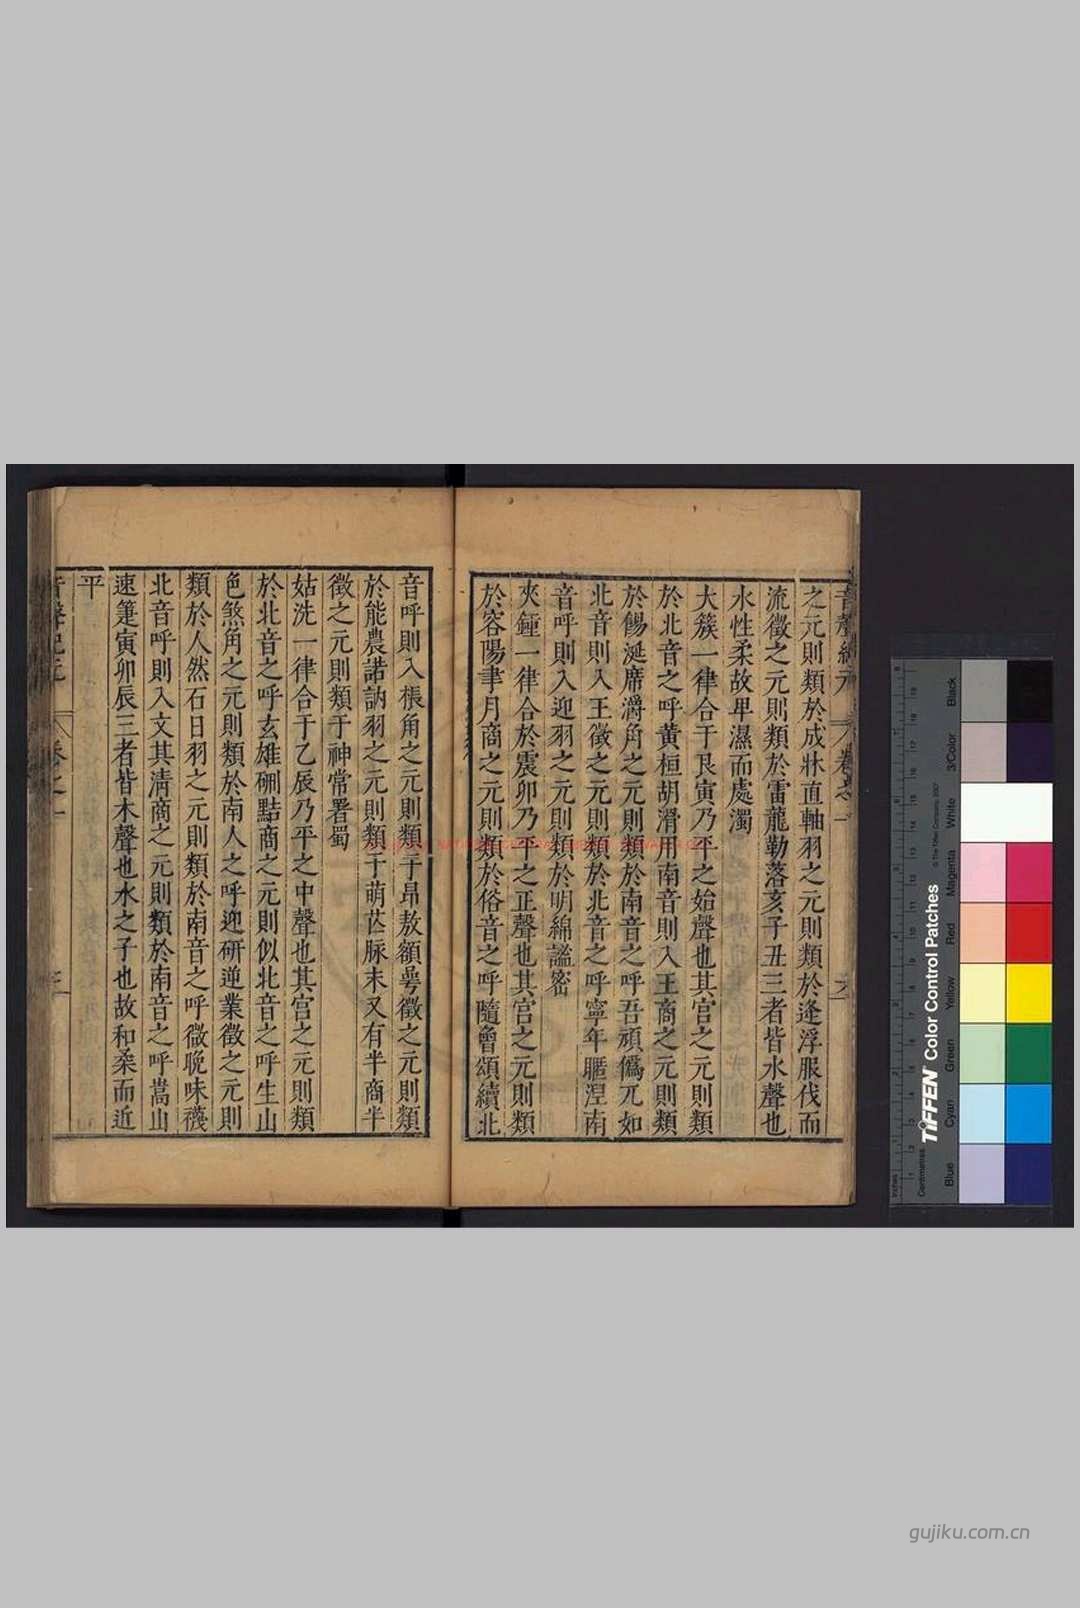 之元則類於成牀直軸羽之元則類於逢浮服伐而
流徵之元則類於雷龍勒落亥子丑三者皆水聲也
水性柔故卑濕而處濁
大簇一律合于艮寅乃平之始聲也其宫之元則類
於北音之呼黄桓胡滑用南音則入王商之元則類
於餳涎席灂角之元則類於南音之呼吾頑僞兀如
北音則入王徵之元則類於北音之呼寧年匿涅南
音呼則入迎羽之元則類於明綿謐密
夾鍾一律合於震卯乃平之正聲也其宫之元則類
於容陽聿月商之元則類於俗音之呼隨會頌續北
音呼則入棖角之元則類于昂敖額咢徵之元則類
於能農諾訥羽之元則類于萌芒脉末又有半商半
徵之元則類于神常署蜀
姑洗一律合于乙辰乃平之中聲也其宫之元則類
於北音之呼玄雄砌黠商之元則似北音之呼生山
色煞角之元則類於南人之呼迎研逆業徵之元則
類於人然石日羽之元則類於南音之呼微晚味襪
北音呼則入文其清商之元則類於南音之呼嵩山
速箑寅卯辰三者皆木聲也水之子也故和柔而近
平
音聲紀元
卷之一
TIFFEN Color Control Patches
© The Tiffen Company, 2007
Inches
Centimetres
Blue
Cyan
Green
Yellow
Red
Magenta
White
3/Color
Black
gujiku.com.cn